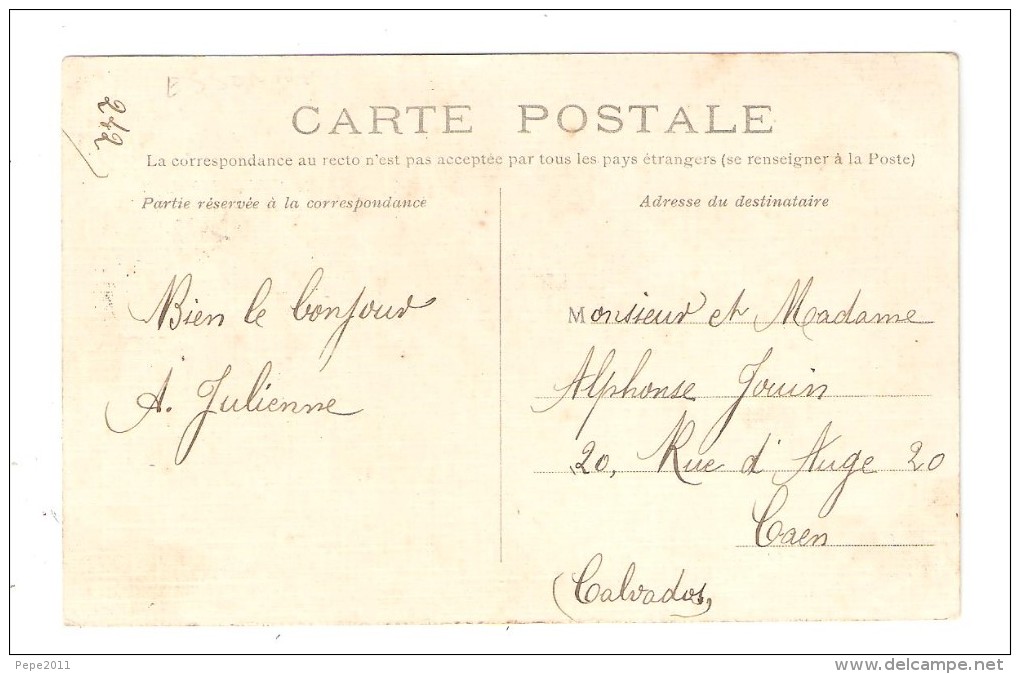 242
CARTE POSTALE
La correspondance au recto n'est pas acceptée par tous les pays étrangers (se renseigner à la Poste)
Partie réservée à la correspondance
Bien le bonjour
A. Julienne
Adresse du destinataire
Monsieur et Madame
Alphonse Jouin
20, Rue d'Auge 20
Caen
(Calvados)
Pepe2011
www.delcampe.net